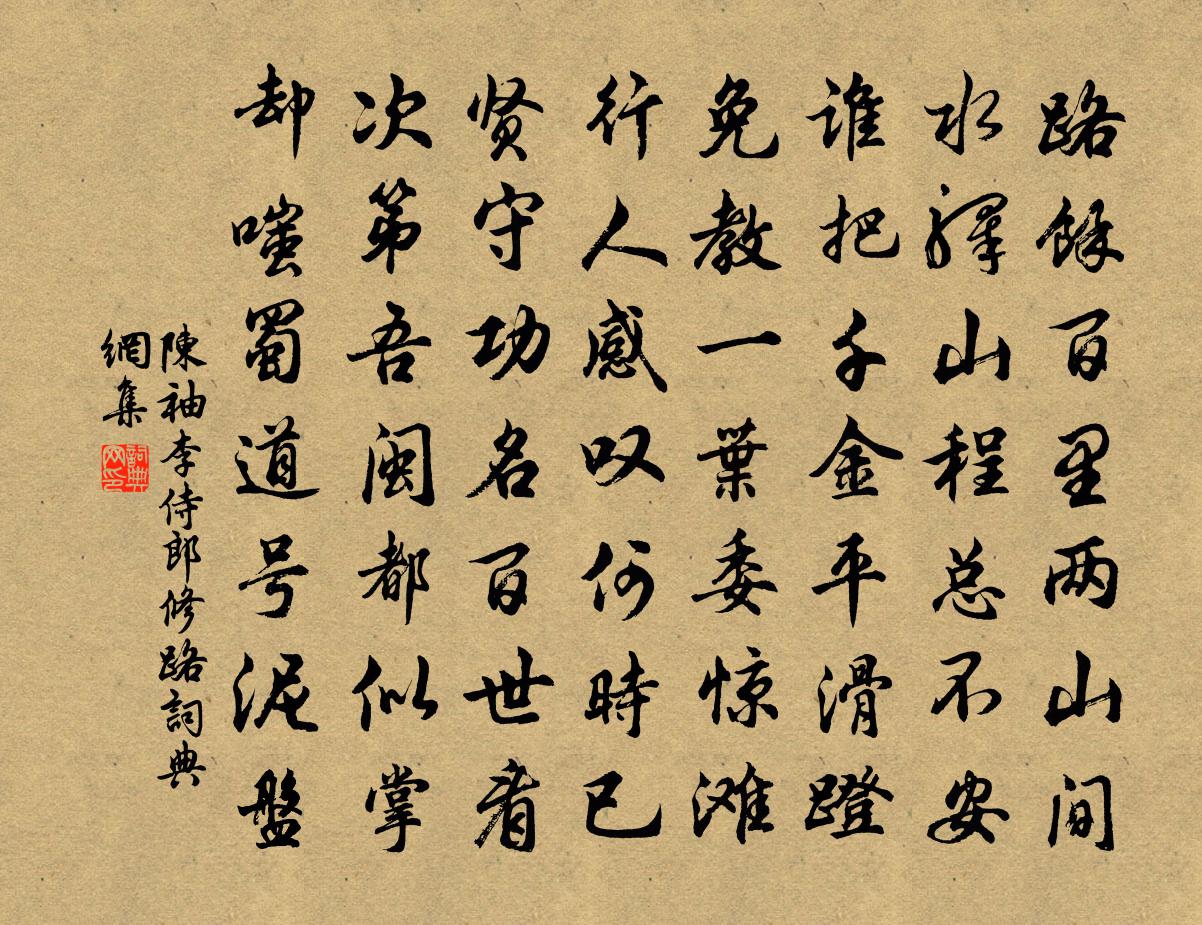 路馀百里两山间
水驿山程总不安
谁把千金平滑蹬
免教一葉委惊滩
行人感叹何時已
贤守功名百世看
次第吾闽都似掌
却嗤蜀道号泥盤
陳袖李侍郎修路詞典
網集
詞典網印